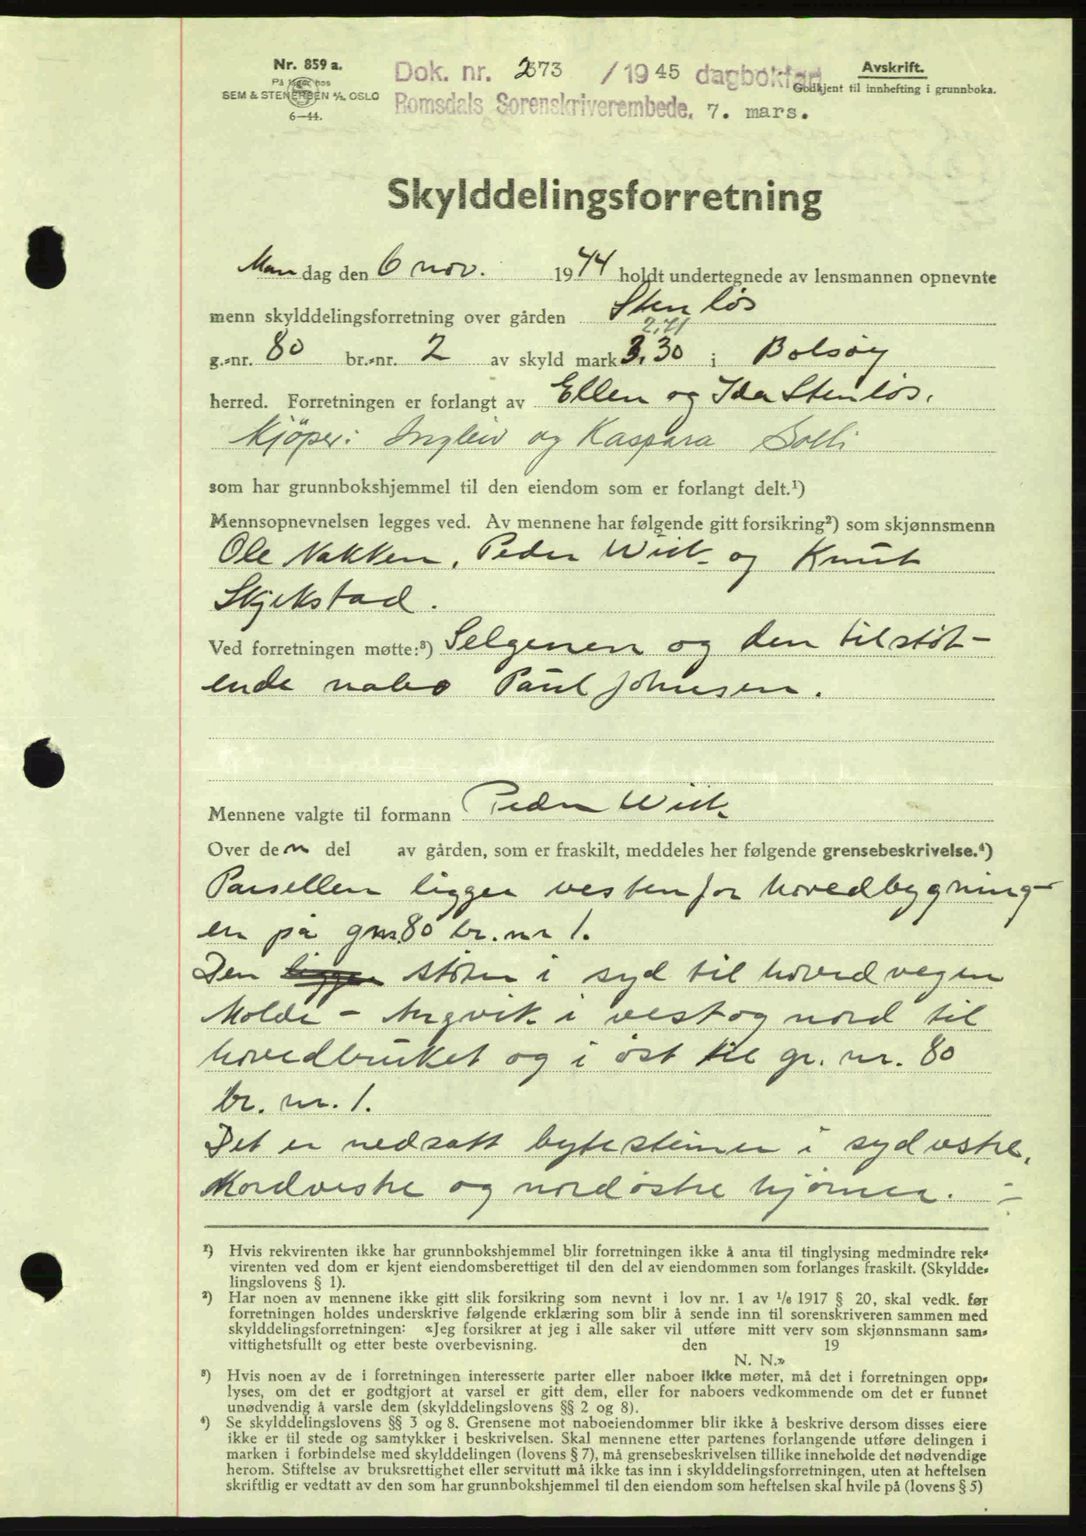 Nr. 859 a.
På lager hos
SEM & STENERSEN A/S, OSLO
6—44.
Dok. nr. 2673 /1945 dagbokført
Romsdals Sorenskriverembede, 7. mars.
Avskrift.
Godkjent til innhefting i grunnboka.
Skylddelingsforretning
Man dag den 6 nov. 1944 holdt undertegnede av lensmannen opnevnte
menn skylddelingsforretning over gården Stenløs
2,71
g.-nr. 80 br.-nr. 2 av skyld mark 3,30 i Bolsøy
herred. Forretningen er forlangt av Ellen og Ida Stenløs.
Kjöper: Ingleiv og Kaspara Solli
som har grunnbokshjemmel til den eiendom som er forlangt delt.¹)
Mennsopnevnelsen legges ved. Av mennene har følgende gitt forsikring²) som skjønnsmenn
Ole Nakken, Peder Wiik og Knut
Skjekstad.
Ved forretningen møtte:³) Selgeren og den tilstöt-
ende nabo Paul Johnsen.
Mennene valgte til formann Peder Wiik
Over den del av gården, som er fraskilt, meddeles her følgende grensebeskrivelse.⁴)
Parsellen ligger vestenfor hovedbygning-
en på gnr. 80 br. nr 1.
Den ligger stöter i syd til hovedvegen
Molde - Angvik i vest og nord til
hovedbruket og i öst til gr. nr. 80
br. nr. 1.
Det er nedsatt bytesteiner i sydvestre,
Nordvestre og nordöstre hjörner. ÷
¹) Hvis rekvirenten ikke har grunnbokshjemmel blir forretningen ikke å anta til tinglysing medmindre rek-
virenten ved dom er kjent eiendomsberettiget til den del av eiendommen som forlanges fraskilt. (Skyldde-
lingslovens § 1).
²) Har noen av mennene ikke gitt slik forsikring som nevnt i lov nr. 1 av 1/6 1917 § 20, skal vedk. før
forretningen holdes underskrive følgende erklæring som blir å sende inn til sorenskriveren sammen med
skylddelingsforretningen: «Jeg forsikrer at jeg i alle saker vil utføre mitt verv som skjønnsmann sam-
vittighetsfullt og etter beste overbevisning. den 19
N. N.»
³) Hvis noen av de i forretningen interesserte parter eller naboer ikke møter, må det i forretningen opp-
lyses, om det er godtgjort at varsel er gitt dem, eller for naboers vedkommende om det er funnet
unødvendig å varsle dem (skylddelingslovens §§ 2 og 8).
⁴) Se skylddelingslovens §§ 3 og 8. Grensene mot naboeiendommer blir ikke å beskrive dersom disses eiere
ikke er til stede og samtykker i beskrivelsen. Skal mennene etter partenes forlangende utføre delingen i
marken i forbindelse med skylddelingen (lovens § 7), må grensebeskrivelsen tillike inneholde det nødvendige
herom. Stiftelse av bruksrettighet eller servitutt må ikke tas inn i skylddelingsforretningen, uten at heftelsen
skriftlig er vedtatt av den som har grunnbokshjemmel til den eiendom som heftelsen skal hvile på (lovens § 5)